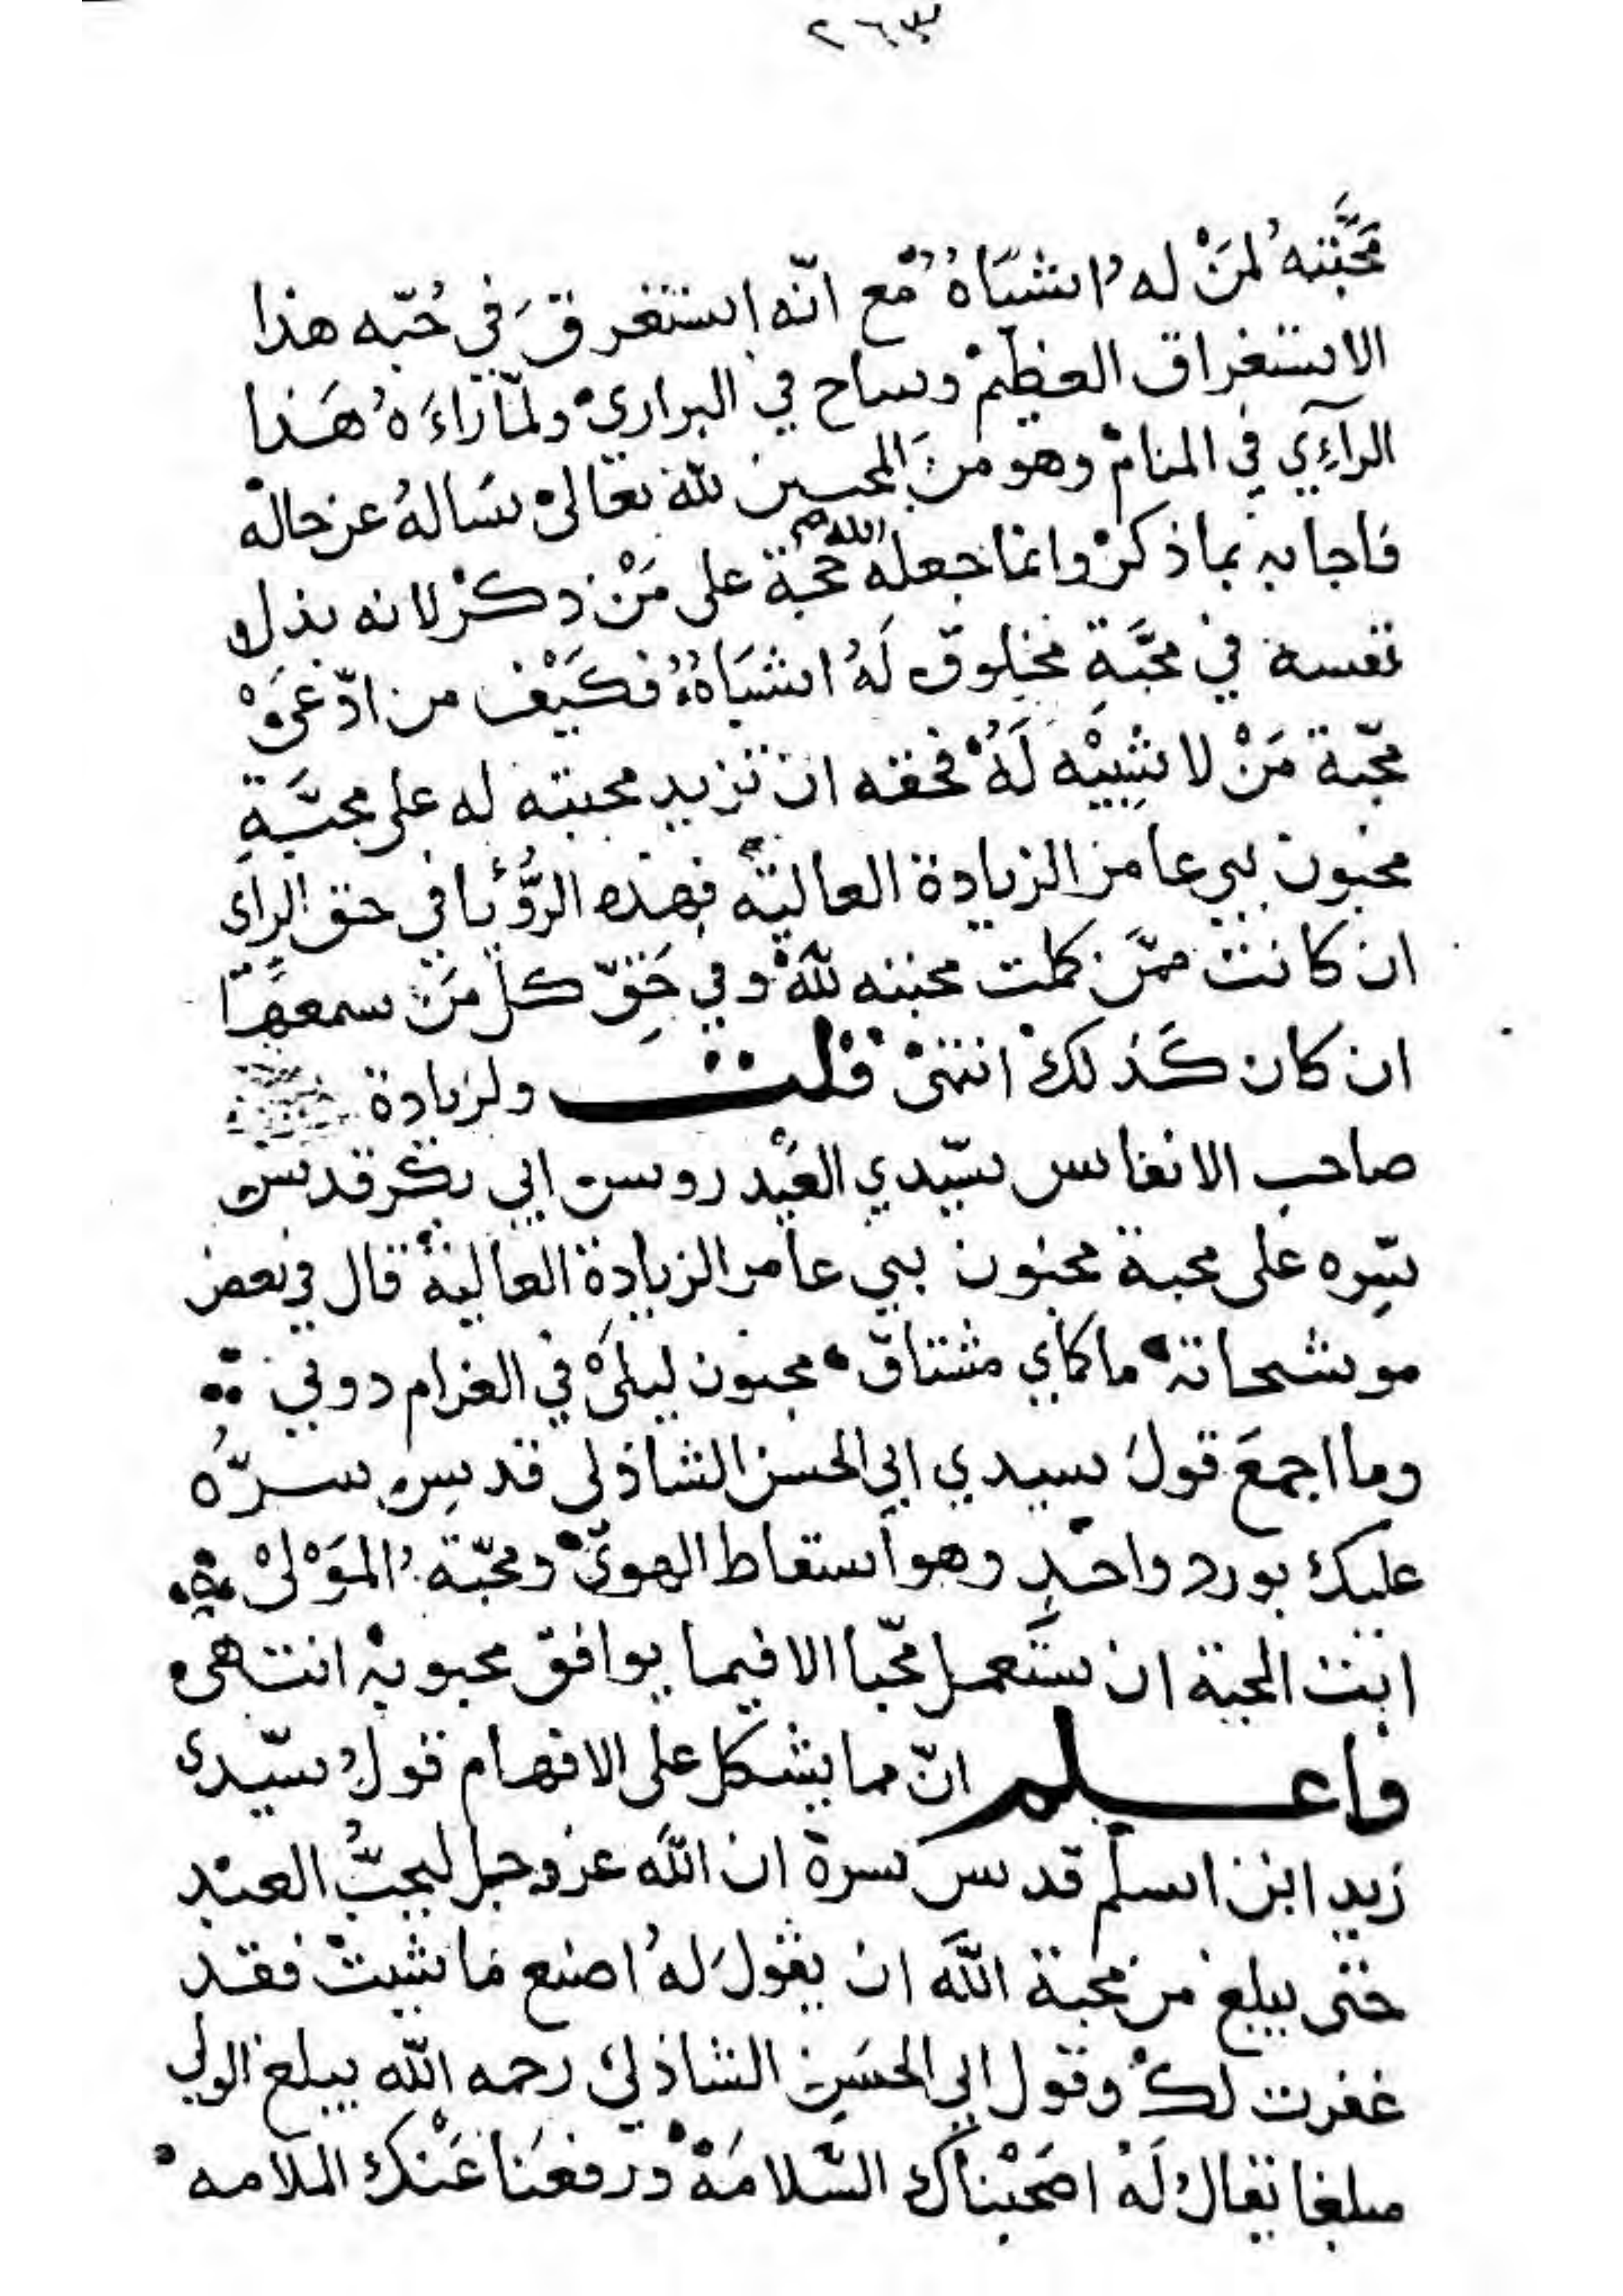 ٢٦٣
محَبَّتهُ لمَنْ لهُ اشبَاهُ مع انّه استغرقَ في حُبّه هذا
الاستغراق العظيمْ وساح في البراري ولمّا رَاءَهُ هَذا
الرآءِي في المنام وهو منَ المحبين لله تعالى سَالهُ عن حاله
فاجابه بما ذكرْ وانما جعله الله حجة على مَنْ ذكرْ لانه بذل
نفسه في محبَّةِ مخلوق لَهُ اشبَاهُ فكَيْف من ادّعَىْ
محبّة مَنْ لا شبِيْه لَهُ فحقه ان تزيد محبته له على محبَّةِ
مجنون بني عامر الزيادة العالية فهذه الرُّؤيا في حق الراي
ان كانت ممَّن كملت محبته للهْ وفي حَقِّ كل مَن سمعهَا
ان كان كَذلكْ انتهىْ قلت ولزيادة
صاحب الانفاس سيّدي العيْدروس ابي بكر قدس
سِّره على محبة مجنون بني عامر الزيادة العالية قال في بعض
موشحاته ما كماي مشتاق مجنون ليلىْ في الغرام دوني
وما اجمعَ قولَ سيدي ابي الحسن الشاذلي قدس سرّهُ
عليك بورد واحدٍ وهو اسقاط الهوىْ ومحبّة المَوْلىْ
ابت المحبة ان تستَعمل محبّا الا فيما يوافق محبوبه انتهى
واعلم انّ مما يشكل على الافهام قولُ سيّدي
زيد ابن اسلم قدس سره ان اللَه عز وجل ليحبُّ العبْد
حتى يبلغ من محبة اللَه ان يقولَ لهُ اصنع مَا شيتْ فقد
غفرت لكْ وقول ابي الحسَن الشاذلي رحمه الله يبلغ الولي
مبلغا يقالُ لَهُ اصحَبْناك السّلامَهْ ورفعنَا عَنْك الملامه